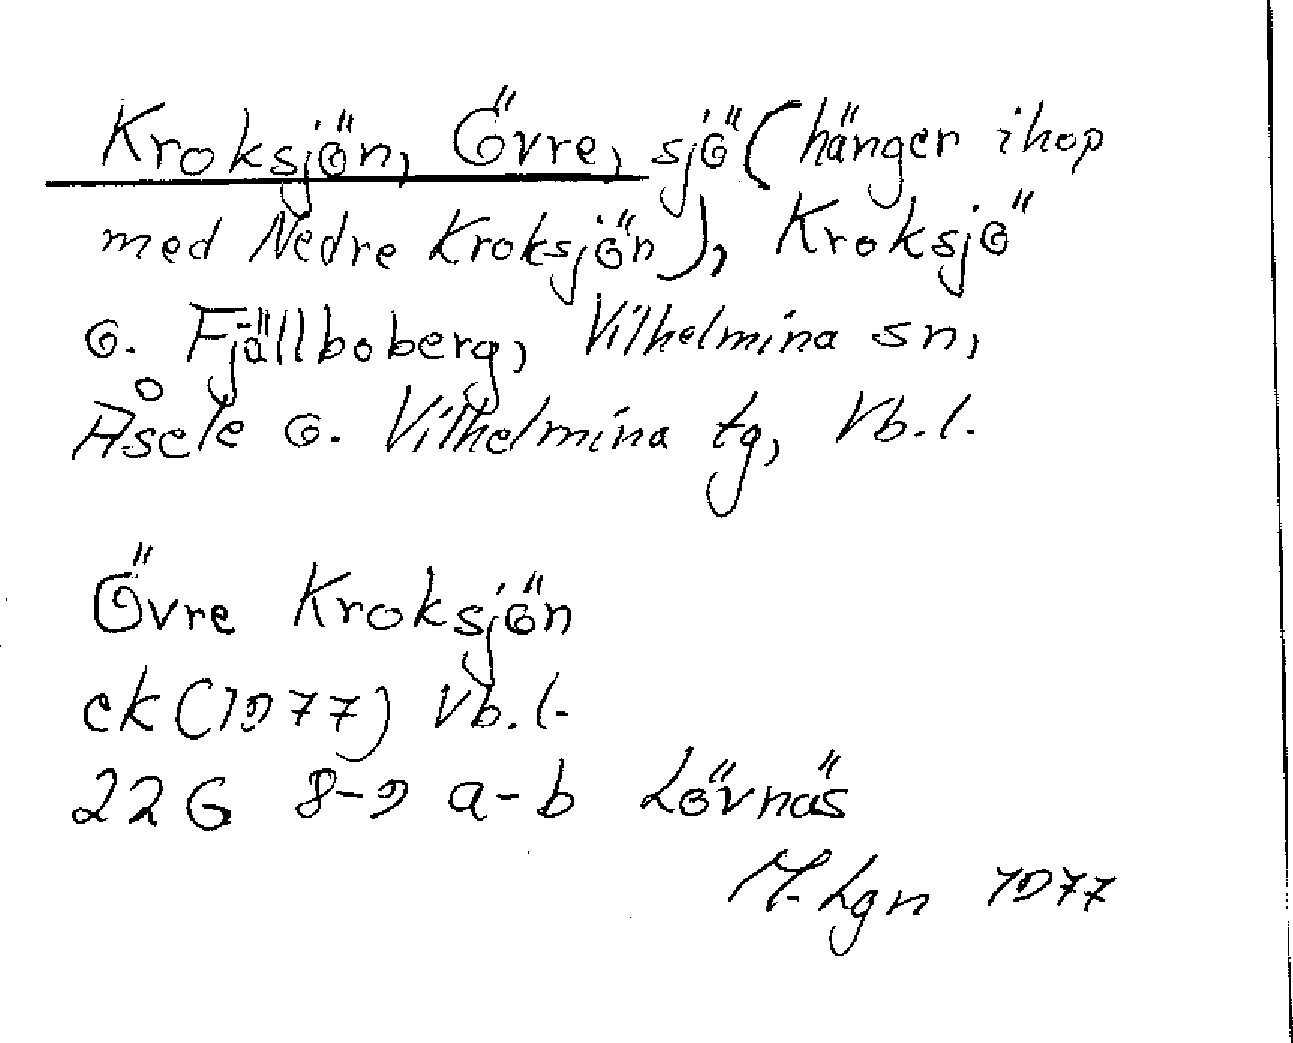 Kroksjön, Övre, sjö (hänger ihop
med Nedre Kroksjön), Kroksjö
o. Fjällboberg, Vilhelmina sn,
Åsele o. Vilhelmina tg, Vb.l.
Övre Kroksjön
ek (1977) Vb.l.
22G 8-9 a-b Lövnäs
M. Lgn 1977